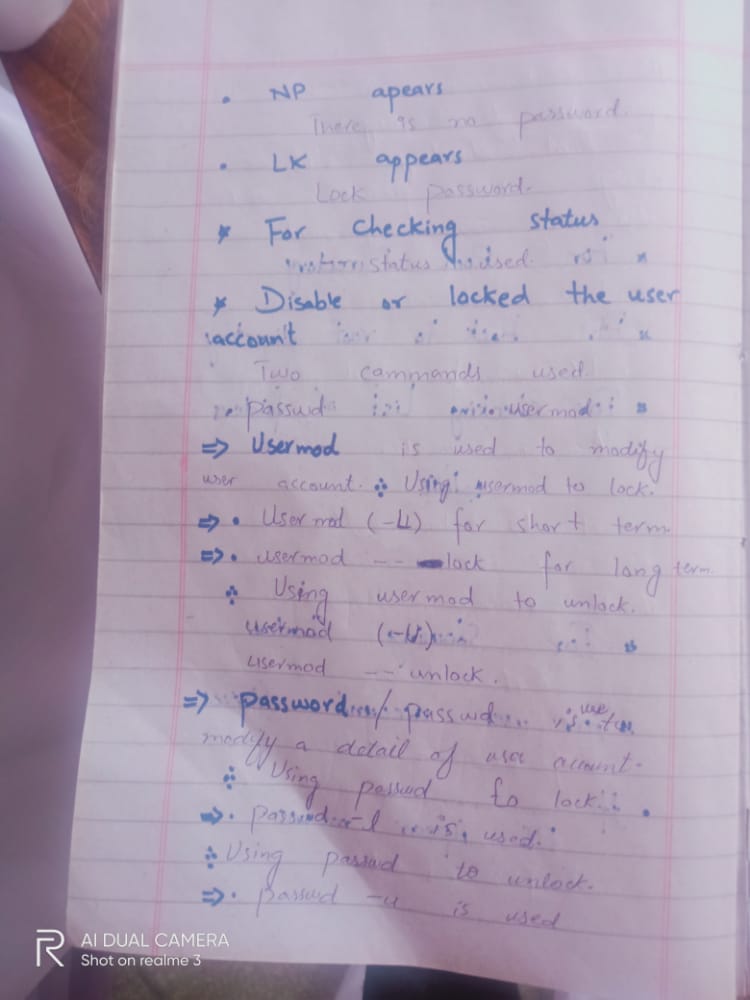 • NP apears
There is no password.
• LK appears
Lock password.
* For checking status
status used
* Disable or locked the user
account
Two commands used
passwd usermod
⇒ Usermod is used to modify
user account. ∴ Using usermod to lock.
⇒ • Usermod (-L) for short term
⇒ • usermod -- lock for long term.
∴ Using usermod to unlock.
usermod (-U)
usermod -- unlock.
⇒ password / passwd use
modify a detail of user account.
∴ Using passwd to lock
⇒ • passwd -l is used.
∴ Using passwd to unlock.
⇒ • passwd -u is used
R AI DUAL CAMERA
Shot on realme 3